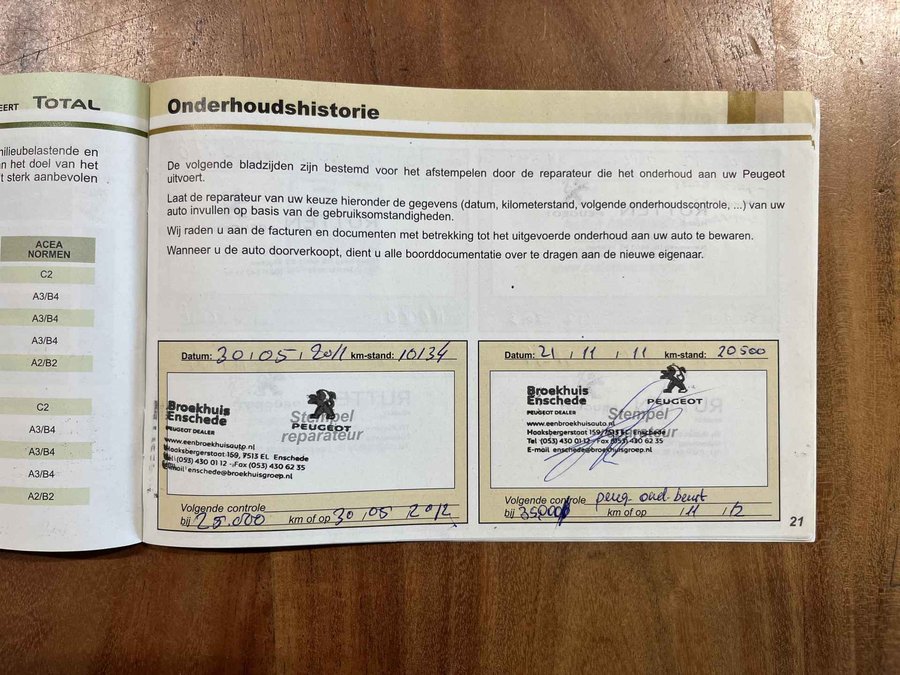 EERT TOTAL
milieubelastende en
n het doel van het
t sterk aanbevolen
ACEA
NORMEN
C2
A3/B4
A3/B4
A3/B4
A2/B2
C2
A3/B4
A3/B4
A3/B4
A2/B2
Onderhoudshistorie
De volgende bladzijden zijn bestemd voor het afstempelen door de reparateur die het onderhoud aan uw Peugeot
uitvoert.
Laat de reparateur van uw keuze hieronder de gegevens (datum, kilometerstand, volgende onderhoudscontrole, ...) van uw
auto invullen op basis van de gebruiksomstandigheden.
Wij raden u aan de facturen en documenten met betrekking tot het uitgevoerde onderhoud aan uw auto te bewaren.
Wanneer u de auto doorverkoopt, dient u alle boorddocumentatie over te dragen aan de nieuwe eigenaar.
Datum: 30, 05, 2011 km-stand: 10134
Broekhuis
Enschede
PEUGEOT DEALER
PEUGEOT
Stempel
reparateur
www.eenbroekhuisauto.nl
Haaksbergerstraat 159, 7513 EL Enschede
Tel (053) 430 01 12 - Fax (053) 430 62 35
E-mail enschede@broekhuisgroep.nl
Volgende controle
bij 25.000 km of op 30, 05, 2012
Datum: 21, 11, 11 km-stand: 20500
Broekhuis
Enschede
PEUGEOT DEALER
PEUGEOT
Stempel
reparateur
www.eenbroekhuisauto.nl
Haaksbergerstraat 159, 7513 EL Enschede
Tel (053) 430 01 12 Fax (053) 430 62 35
E-mail enschede@broekhuisgroep.nl
Volgende controle peug-oud-beurt
bij 35000 km of op , 11 , 12
21